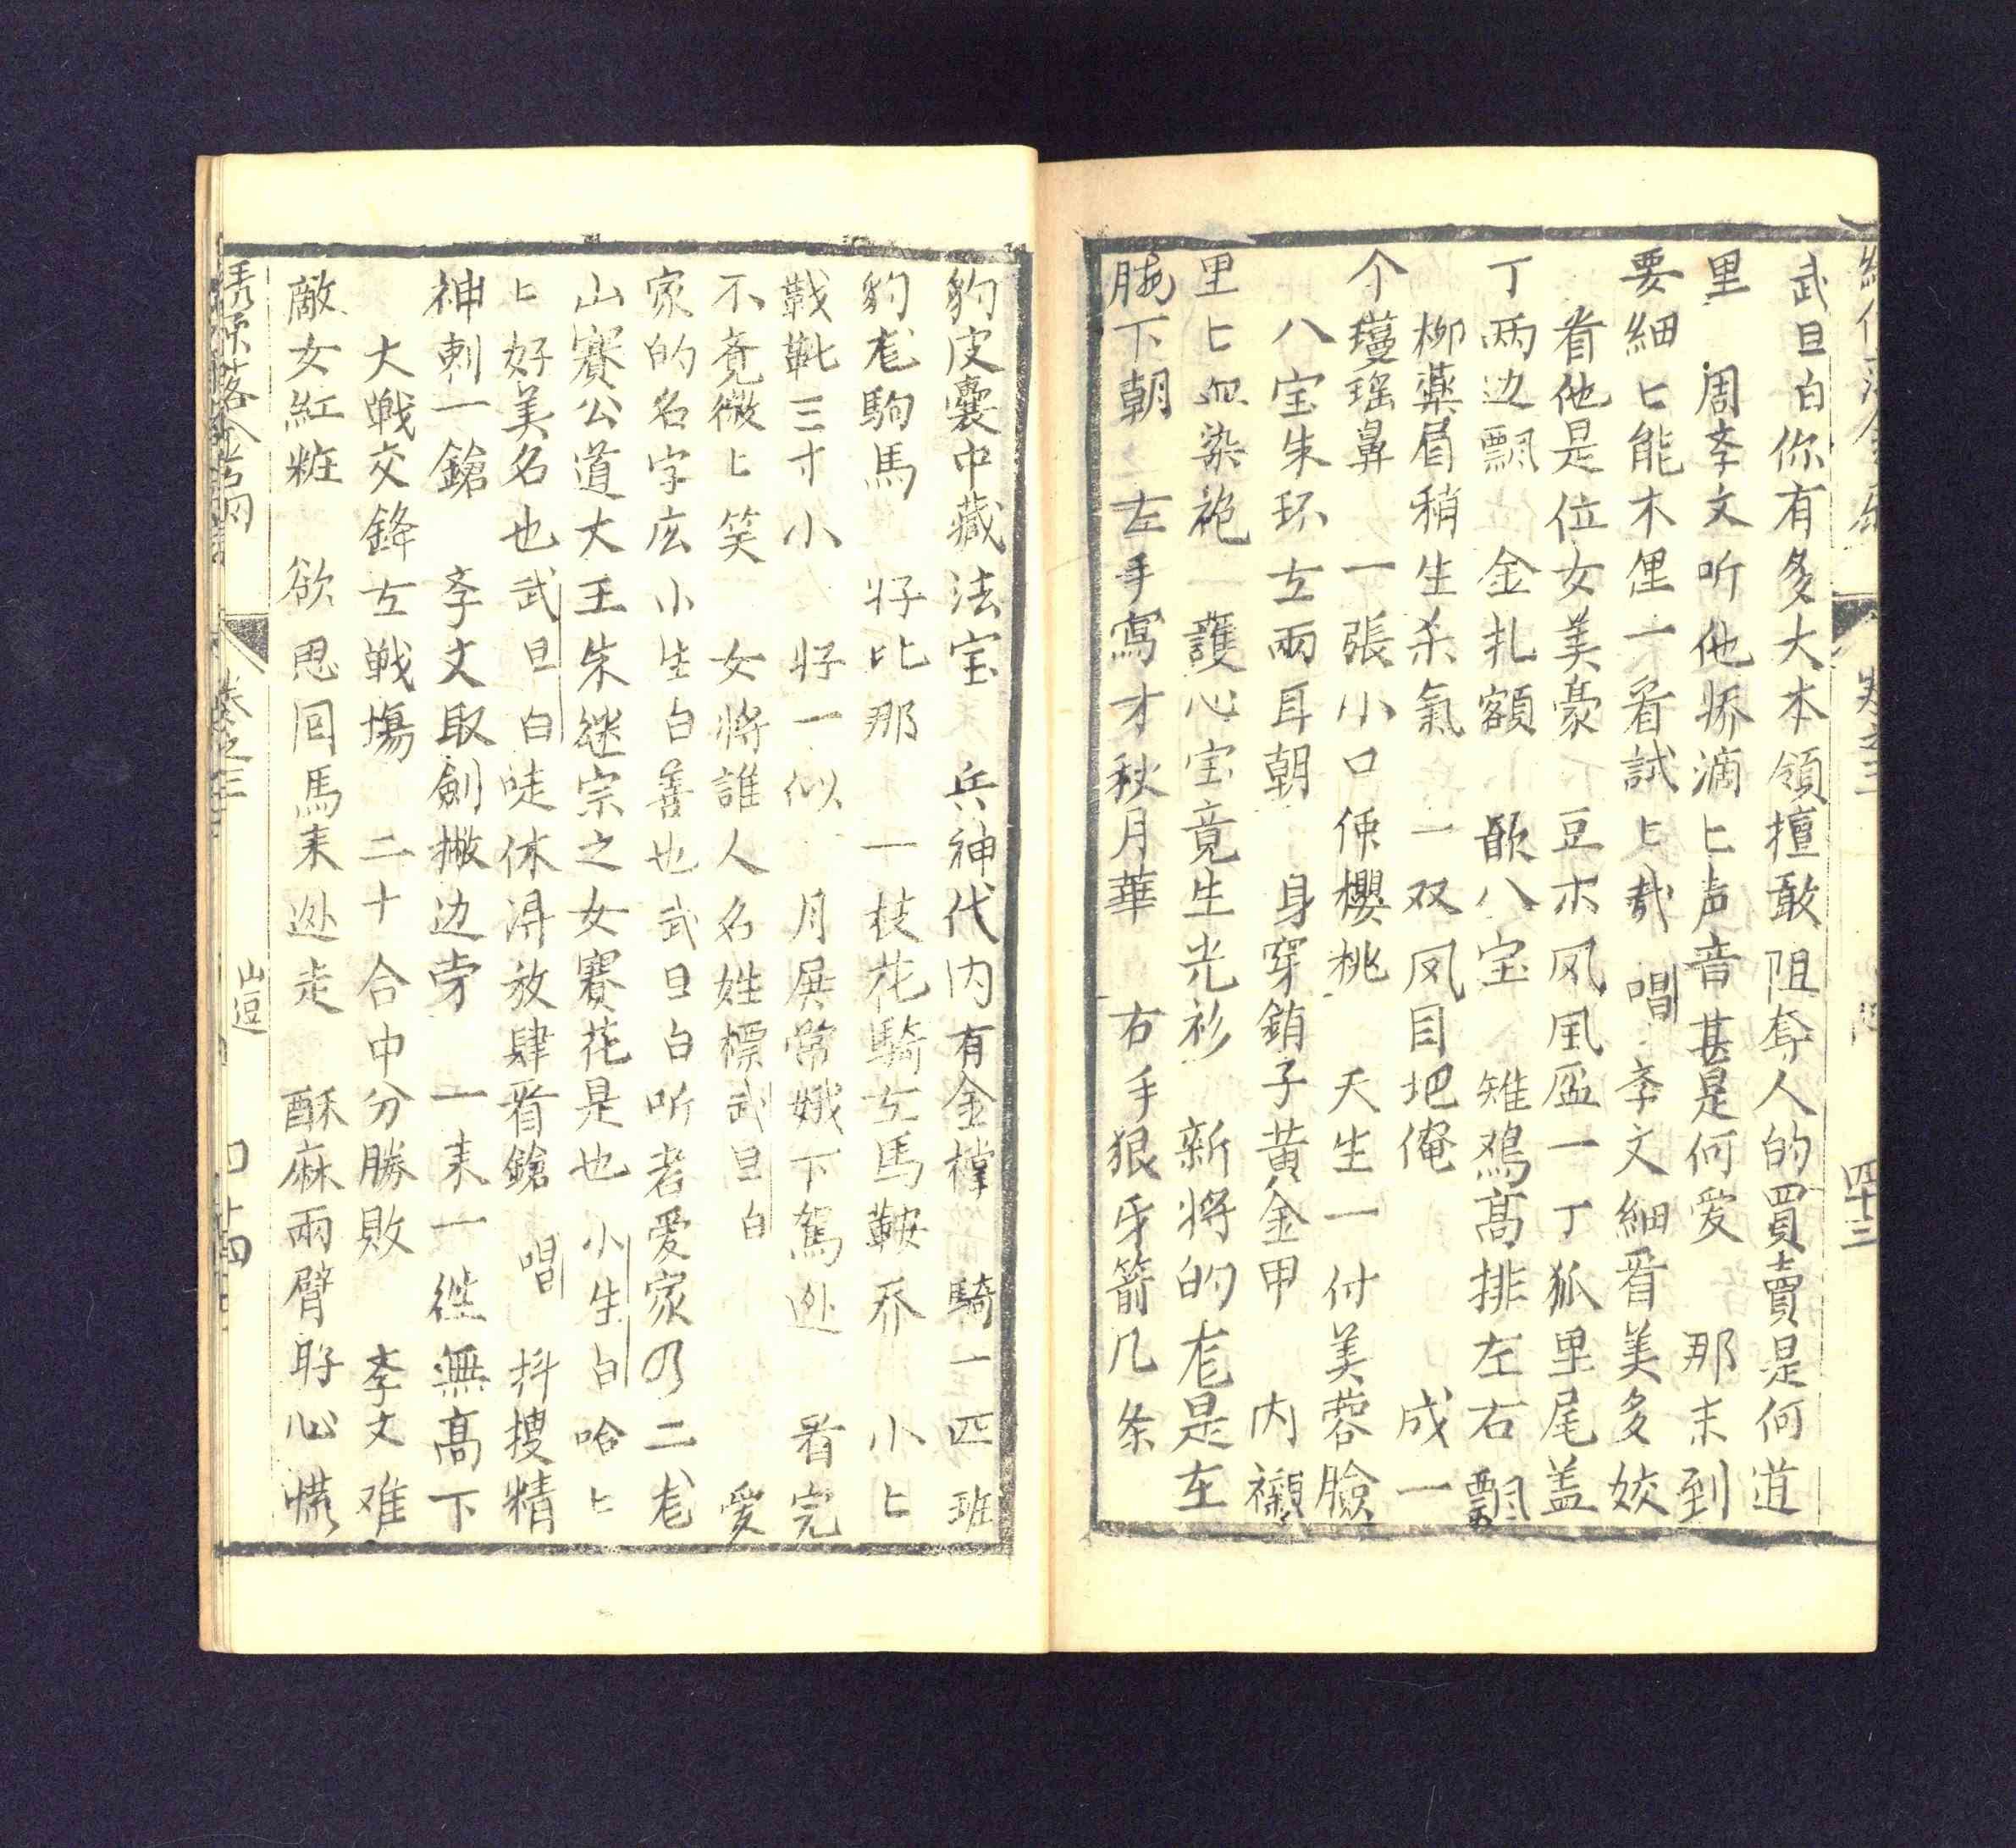 卷之三
四十三
武旦白你有多大本領擅敢阻奪人的買賣是何道
里 周李文听他娇滴匕声音甚是何爱 那末到
要細匕能木俚一看試匕哉 唱 李文細看美多姣
看他是位女美豪 豆木凤凰盔一丁狐里尾盖
丁两边飘 金扎額 歃八宝 雉鴉髙排左右飄
柳藥眉稍生杀氣 一双凤目把俺 成一
个瓊瑶鼻 一張小口便櫻桃 天生一付美蓉臉
八宝朱环左兩耳朝 身穿銷子黄金甲 内襯
里匕血染袍 護心宝竟生光衫 新将的尨是在
腕下朝 左手寫才秋月華 右手狠牙箭几条
豹皮囊中藏法宝 兵神代内有金㯑 騎一匹班
豹尨駒馬 好比那 一枝花騎左馬鞍乔 小匕
戰靴三寸小 好一似 月屏常娥下駕迯 看完
不覔微匕笑 女將誰人名姓標武旦白 爱
家的名字庅小生白善也武旦白听者爱家乃二尨
山賽公道大王朱継宗之女賽花是也小生白哈匕
匕好美名也武旦白哇休淂放肆看鎗 唱 抖搜精
神刺一鎗 李文取劍撇边旁 一来一徃無髙下
大戰交鋒左戰塲 二十合中分勝敗 李文难
敵女紅粧 欲思囘馬来迯走 酥麻兩臂盱心慌
卷之三
山逗
四十四